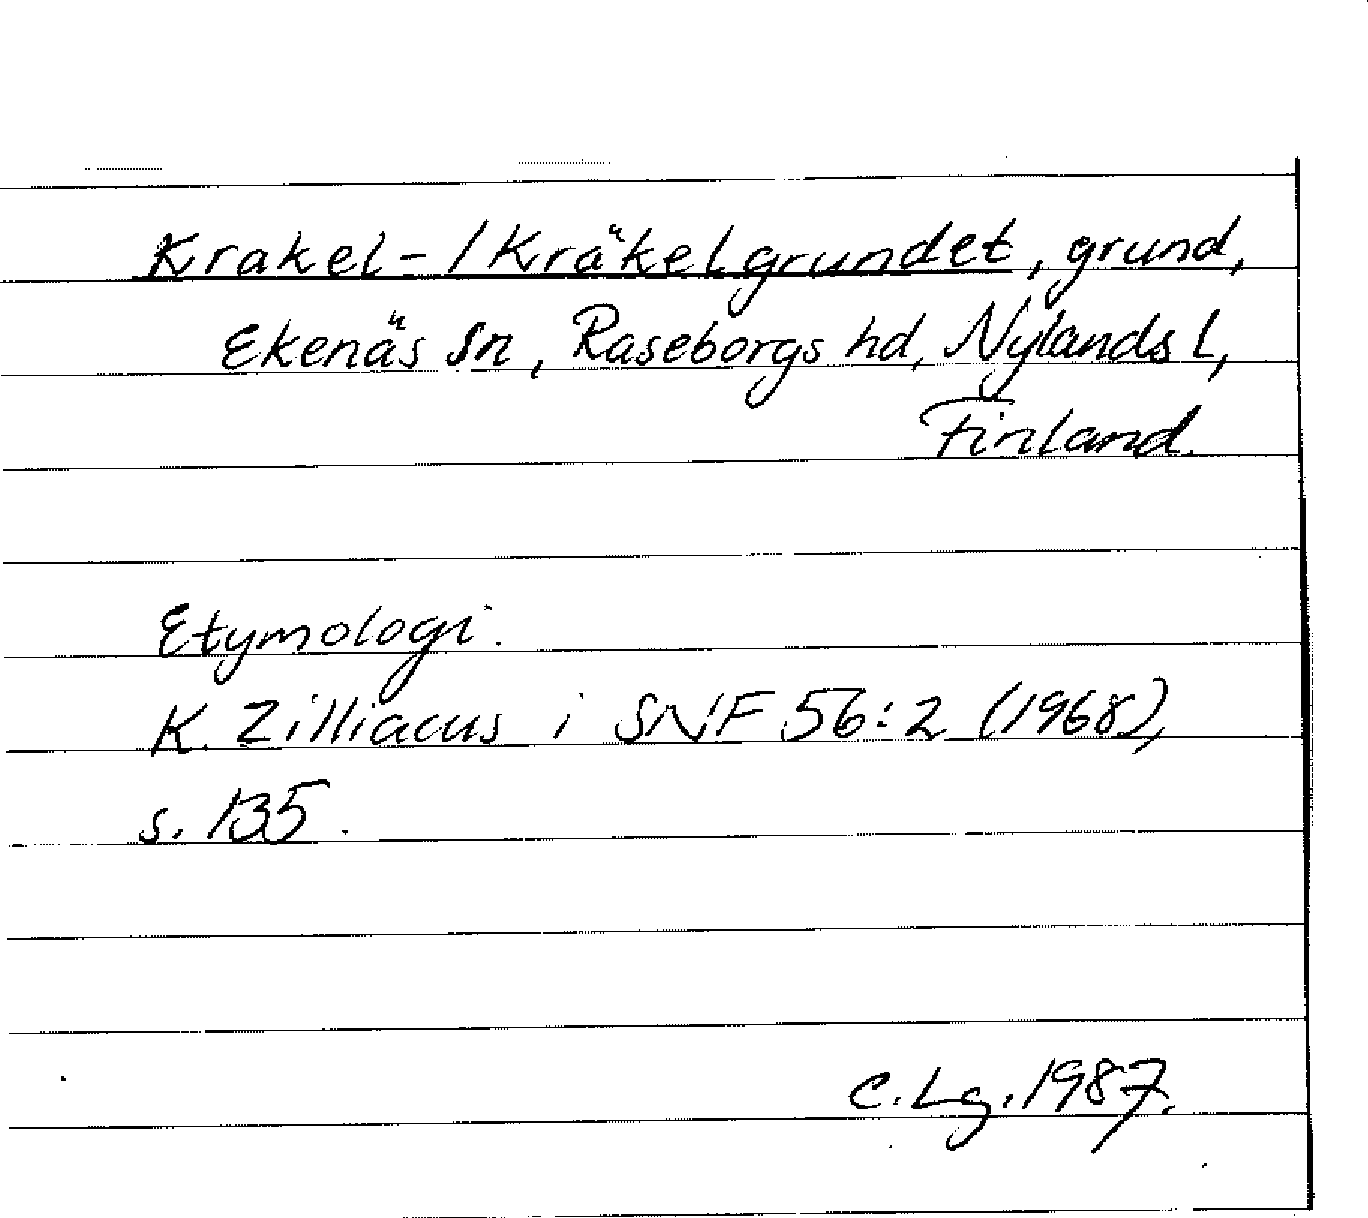 Krakel-/Kräkelgrundet, grund,
Ekenäs sn, Raseborgs hd, Nylands l,
Finland.
Etymologi.
K. Zilliacus i SNF 56:2 (1968),
s. 135.
C. Lg. 1987.